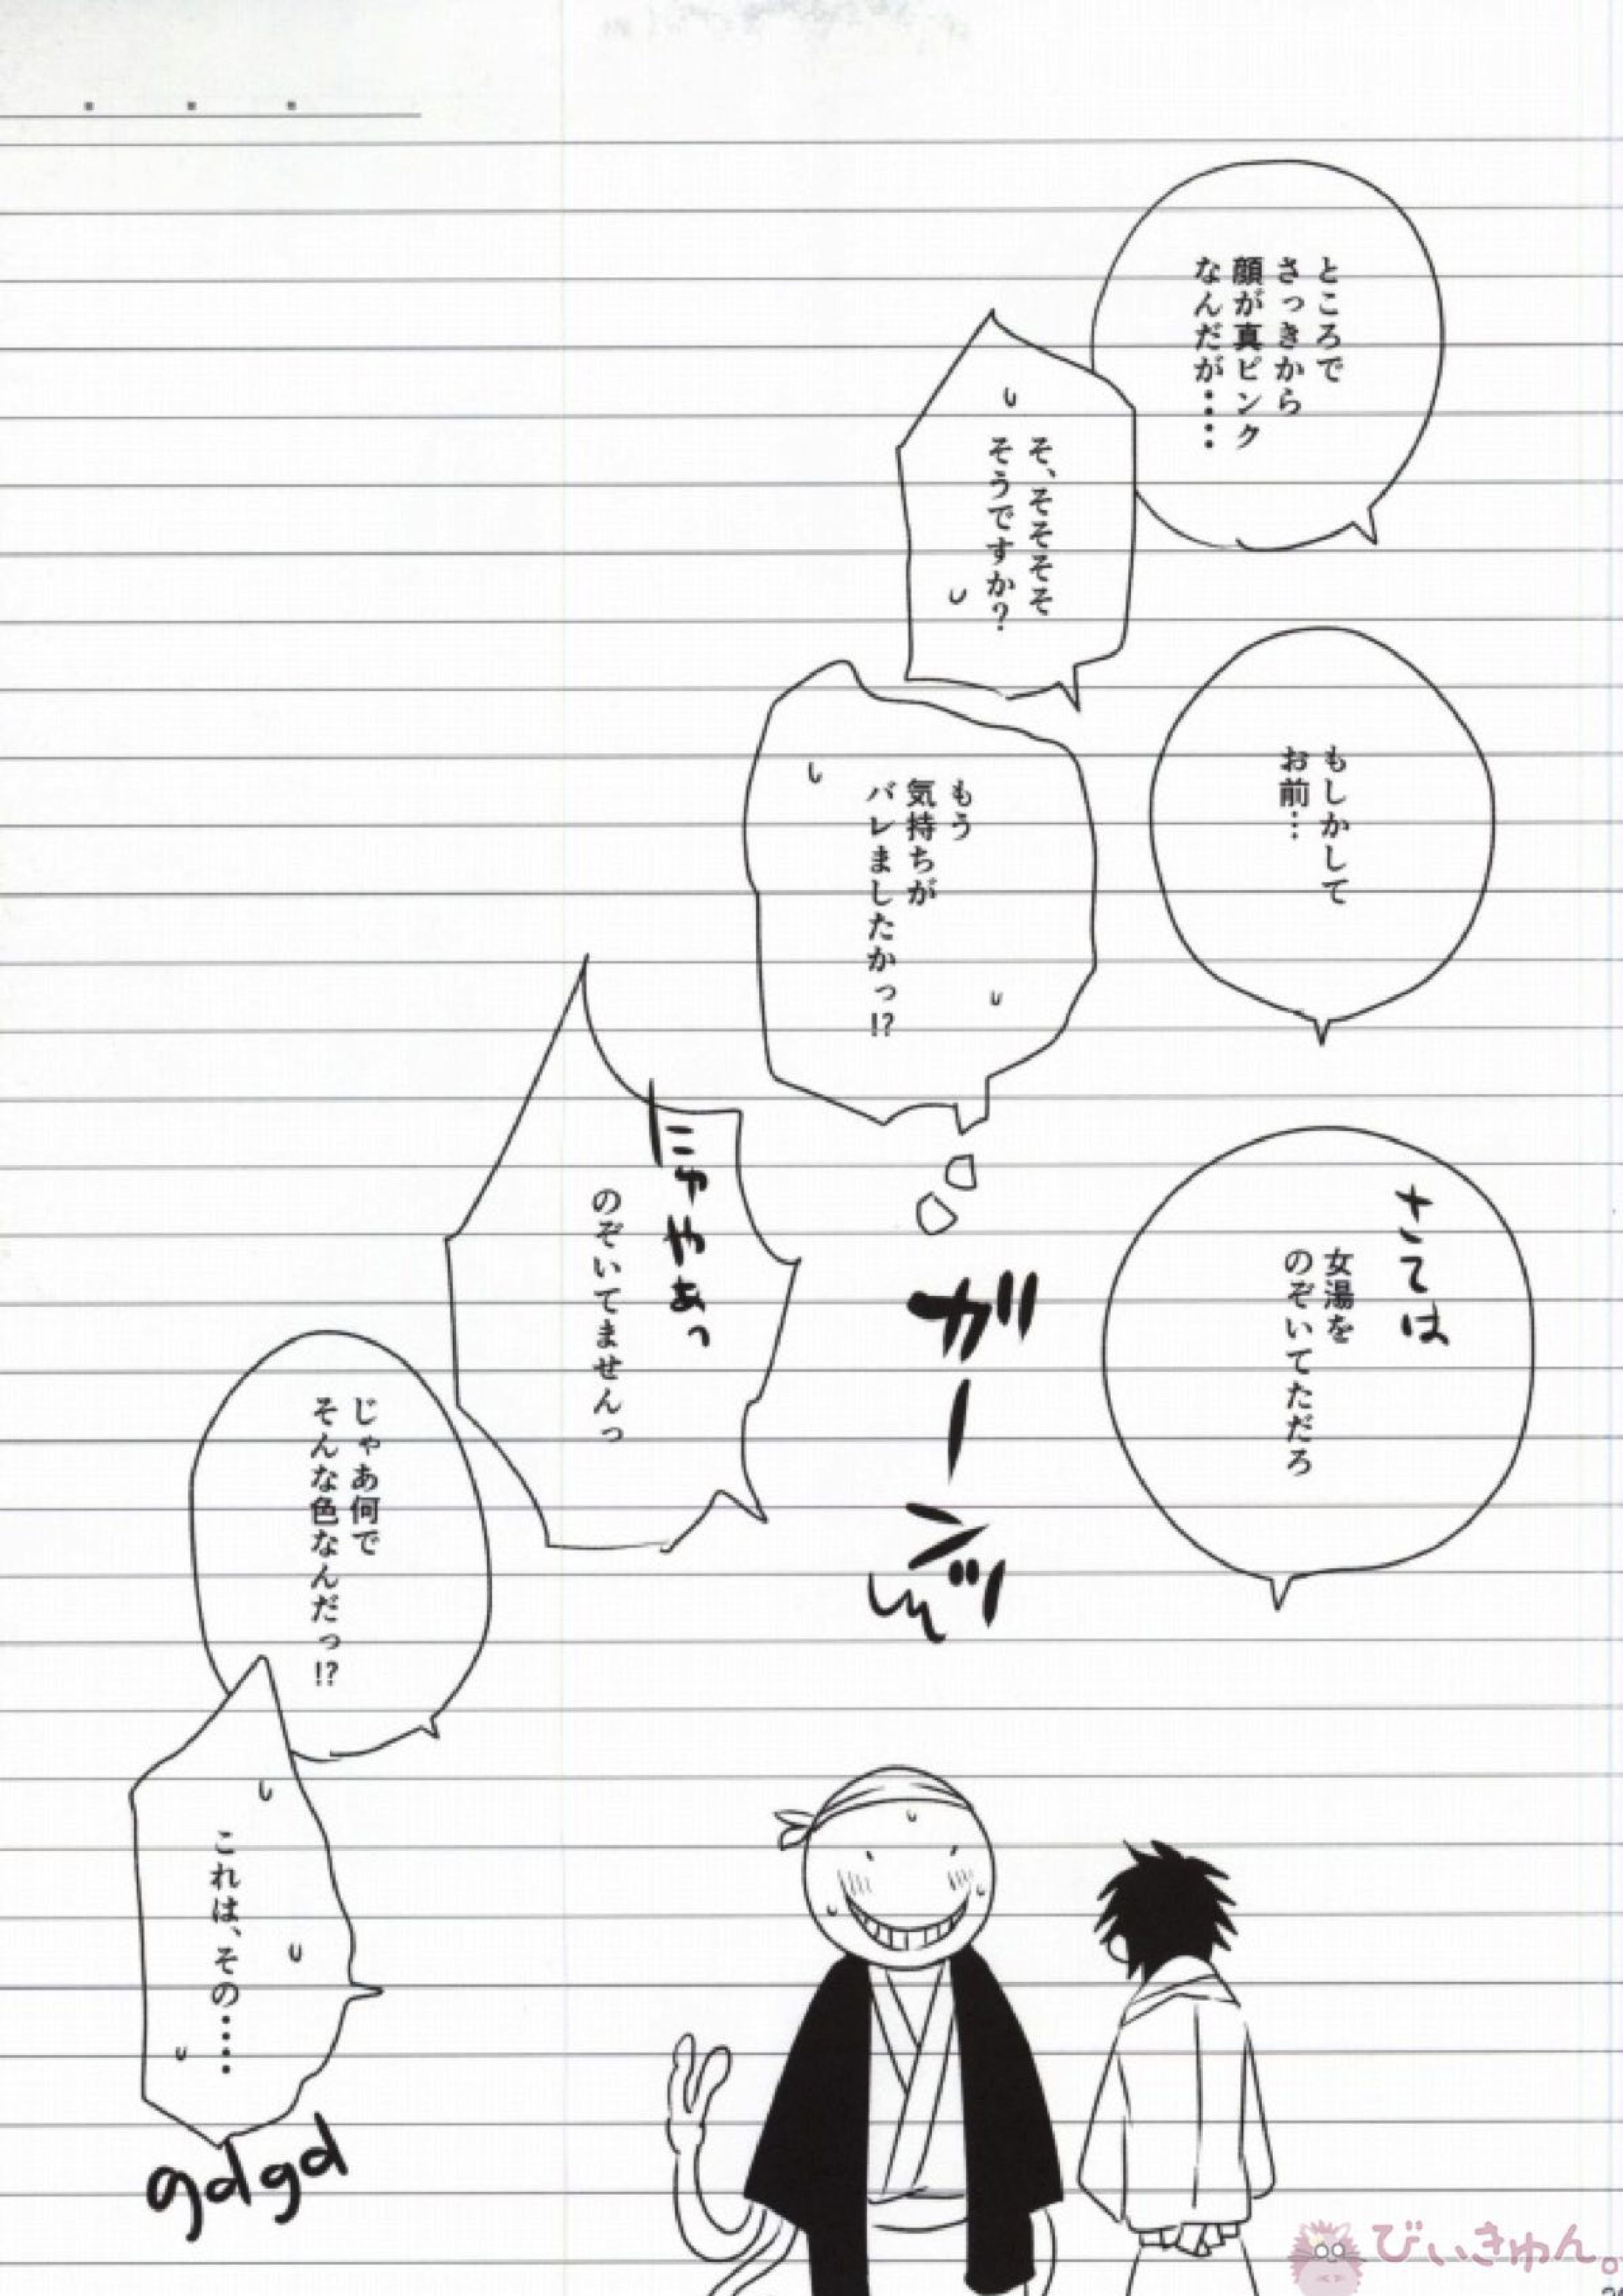 ところで
さっきから
顔が真ピンク
なんだが‥‥
そ、そそそそ
そうですか?
もしかして
お前…
もう
気持ちが
バレましたかっ!?
さては
女湯を
のぞいてただろ
ガーンッ
にゃやぁっ
のぞいてませんっ
じゃあ何で
そんな色なんだっ!?
これは、その‥‥‥
gdgd
びぃきゅん。